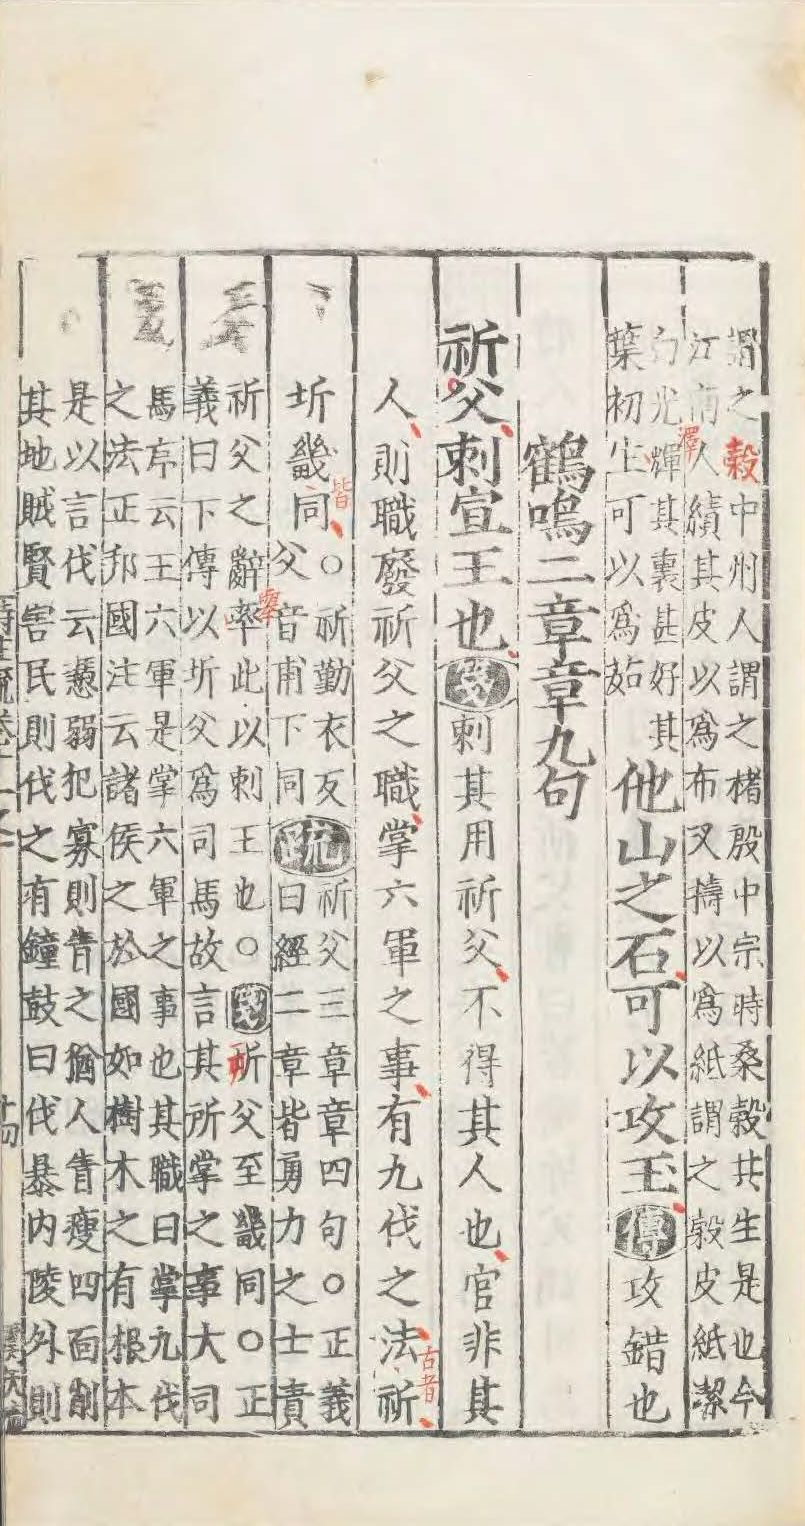 謂之穀中州人謂之楮殷中宗時桑穀共生是也今
江南人績其皮以爲布又擣以爲紙謂之穀皮紙潔
白光輝其裏甚好其
葉初生可以爲茹
他山之石可以攻玉傳攻錯也
鶴鳴二章章九句
祈父刺宣王也箋刺其用祈父不得其人也官非其
人則職廢祈父之職掌六軍之事有九伐之法祈
圻畿同
○祈勤衣反
父音甫下同
疏
祈父三章章四句○正義
曰經二章皆勇力之士責
祈父之辭率此以刺王也○箋祈父至畿同○正
義曰下傳以圻父爲司馬故言其所掌之事大司
馬序云王六軍是掌六軍之事也其職曰掌九伐
之法正邦國注云諸侯之於國如樹木之有根本
是以言伐云憑弱犯寡則眚之猶人眚瘦四面削
其地賊賢害民則伐之有鐘鼓曰伐暴内陵外則
澤
皆
古者
十四